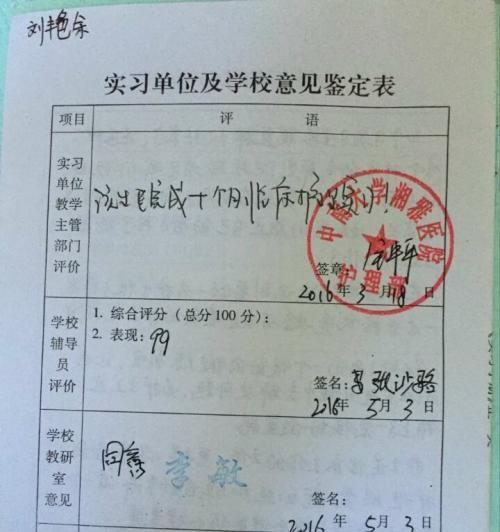 刘艳余
实习单位及学校意见鉴定表
项目
评 语
实习
单位
教学
主管
部门
评价
该生完成十个月临床病理实习!
中南大学湘雅医院
病理科
签章:
2016年3月18日
学校
辅导
员
评价
1. 综合评分(总分100分):
2. 表现:99
签名:
2016年5月3日
学校
教研
室
意见
同意
李敏
签名:
年 月 日